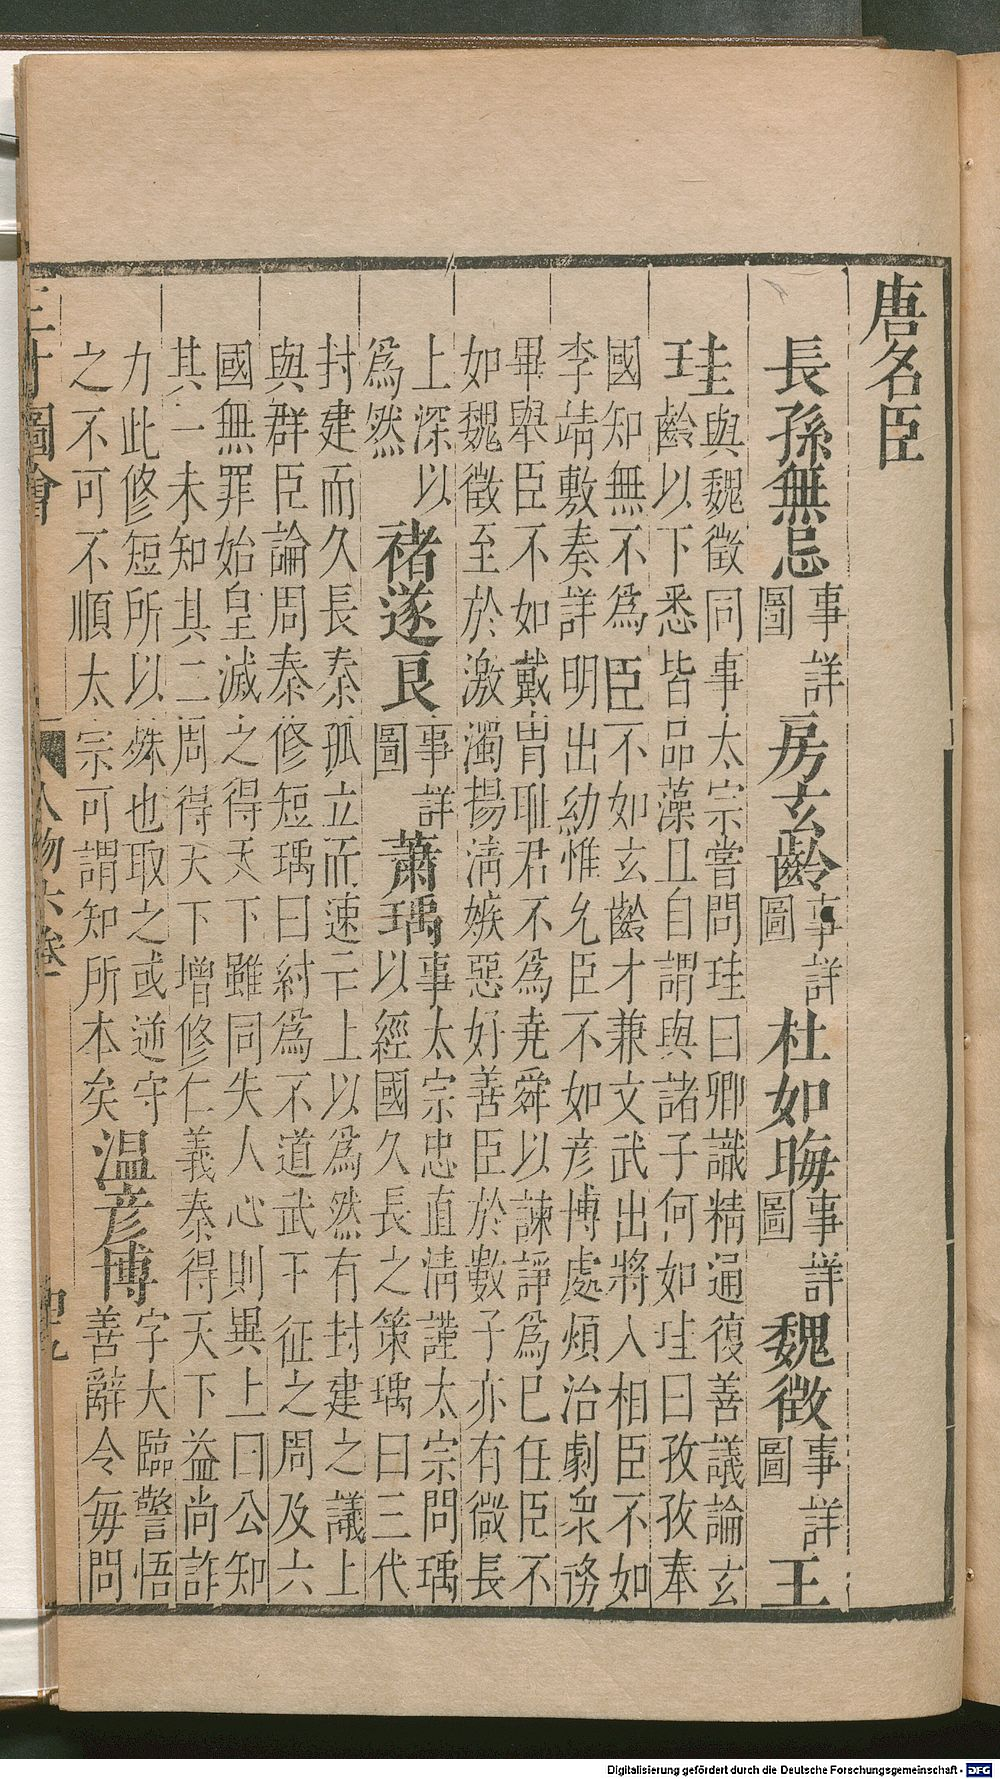 唐名臣
長孫無忌事詳圖房玄齡事詳圖杜如晦事詳圖魏徵事詳圖王
珪與魏徵同事太宗嘗問珪曰卿識精通復善議論玄
齡以下悉皆品藻且自謂與諸子何如珪曰孜孜奉
國知無不為臣不如玄齡才兼文武出將入相臣不如
李靖敷奏詳明出幼惟允臣不如彥博處煩治劇衆務
畢舉臣不如戴胄恥君不為堯舜以諫諍為已任臣不
如魏徵至於激濁揚清嫉惡好善臣於數子亦有微長
上深以
為然
褚遂良事詳圖蕭瑀事太宗忠直清謹太宗問瑀
以經國久長之策瑀曰三代
封建而久長秦孤立而速亡上以為然有封建之議上
與群臣論周秦修短瑀曰紂為不道武王征之周及六
國無罪始皇滅之得天下雖同失人心則異上曰公知
其一未知其二周得天下增修仁義秦得天下益尚詐
力此修短所以殊也取之或逆守
之不可不順太宗可謂知所本矣
溫彥博字大臨警悟
善辭令毎問
三才圖會 人物六卷
Digitalisierung gefördert durch die Deutsche Forschungsgemeinschaft - DFG